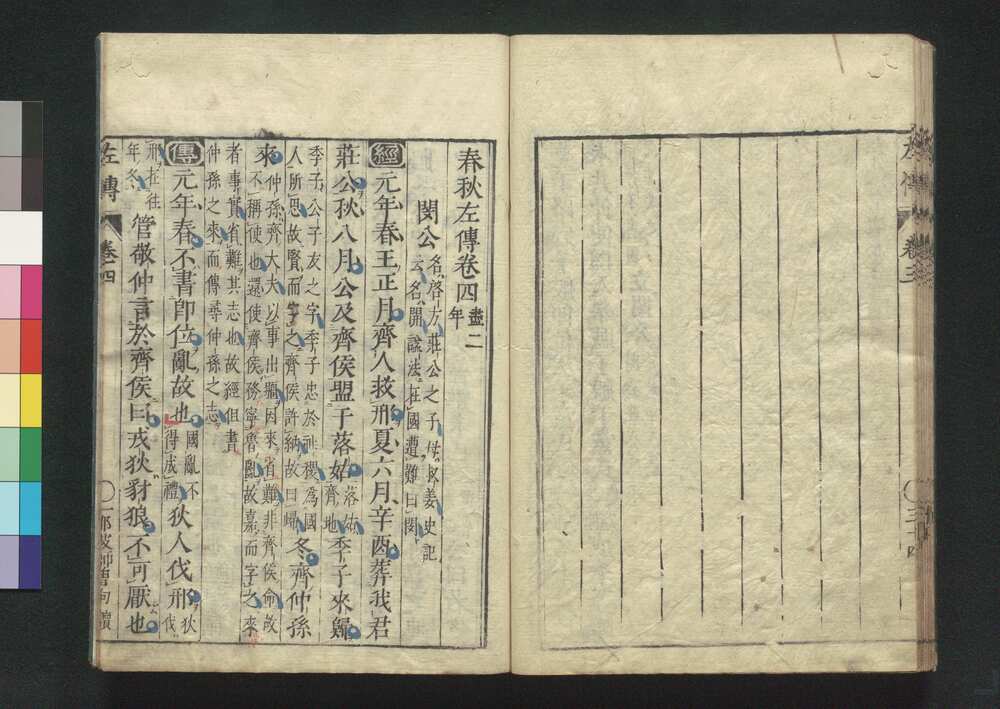 春秋左傳卷四
盡二
年
閔公
名啓方莊公之子母叔姜史記
云名開諡法在國遭難曰閔
經元年春王正月齊人救邢夏六月辛酉葬我君
莊公秋八月公及齊侯盟于落姑
落姑
齊地
季子來歸
季子公子友之字季子忠於社稷爲國
人所思故賢而字之齊侯許納故曰歸
冬齊仲孫
來
仲孫齊大夫以事出疆因來省難非齊侯命故
不稱使也還使齊侯務寧魯亂故嘉而字之來
者事實省難其志也故經但書
仲孫之來而傳尋仲孫之志
傳元年春不書即位亂故也
國亂不
得成禮
狄人伐邢
狄
伐
邢在往
年冬
管敬仲言於齊侯曰戎狄豺狼不可厭也
左傳
卷四
一
卷三